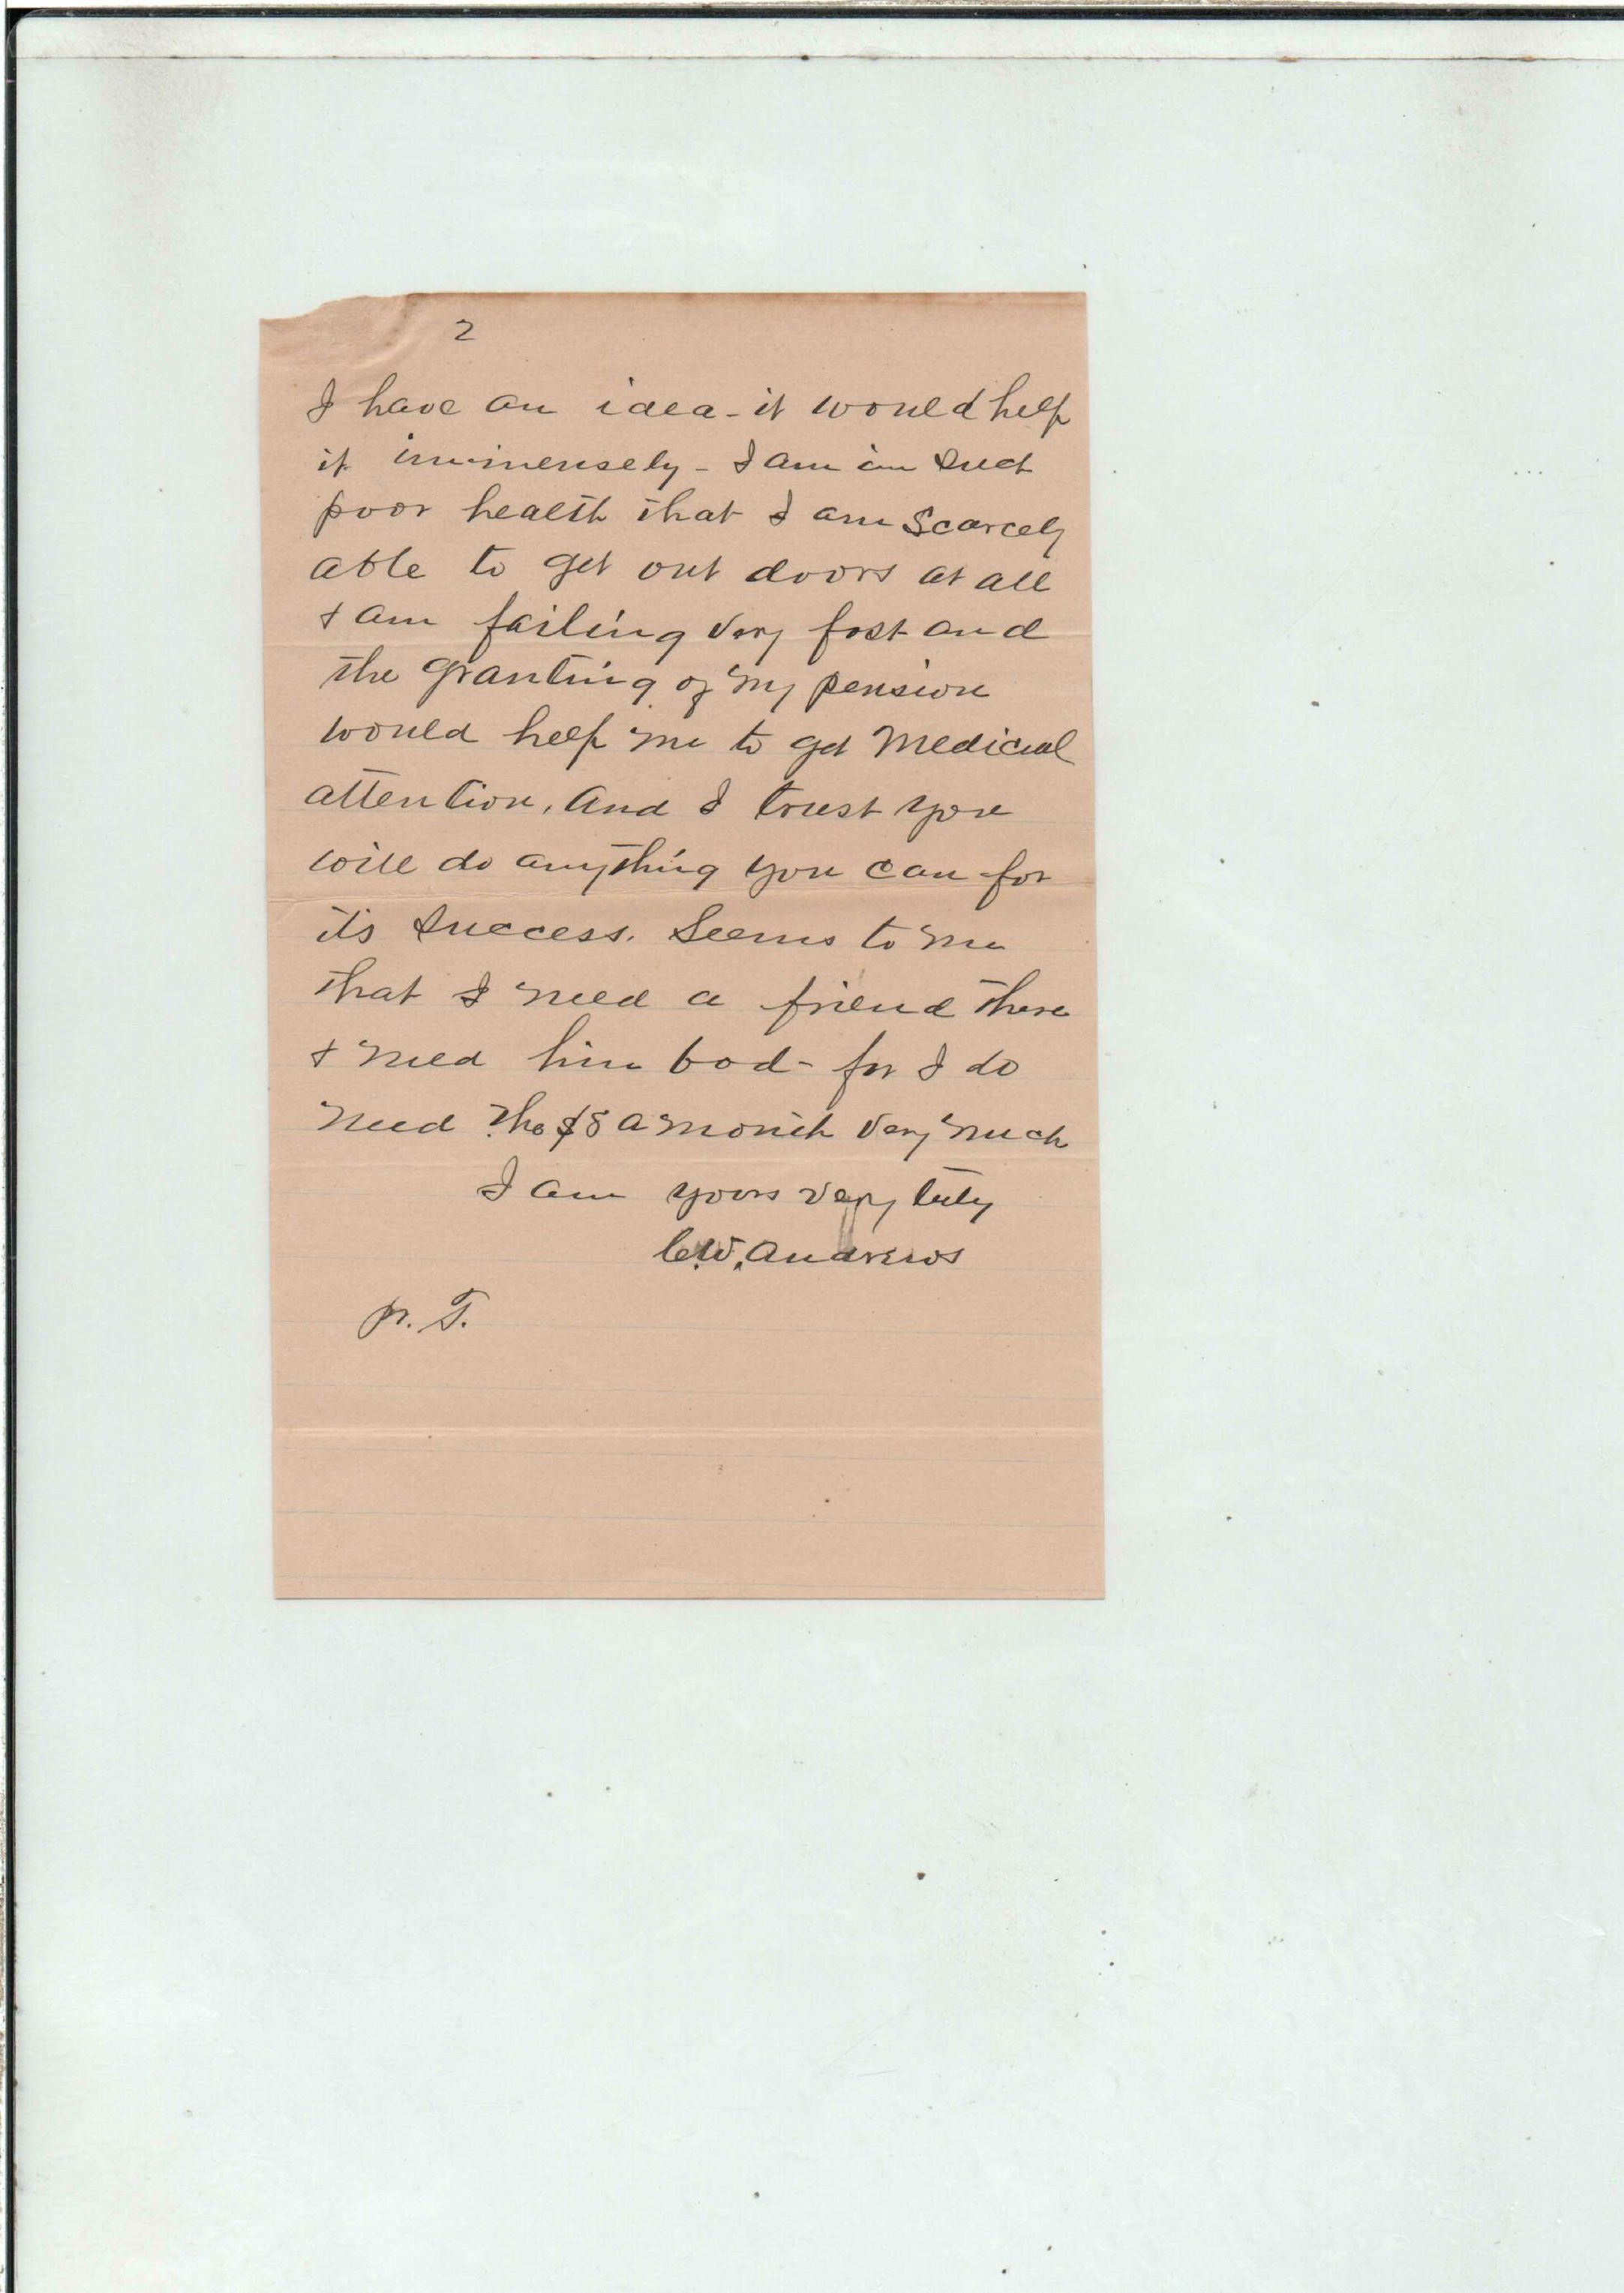 2
I have an idea - it would help
it immensely - I am in such
poor health that I am Scarcely
able to get out doors at all
& am failing very fast and
the granting of my pension
would help me to get Medical
attention. And I trust you
will do anything you can for
its success. Seems to me
that I need a friend there
& need him bad - for I do
need the $8 a month very much
I am yours very truly
C.W. Andrews